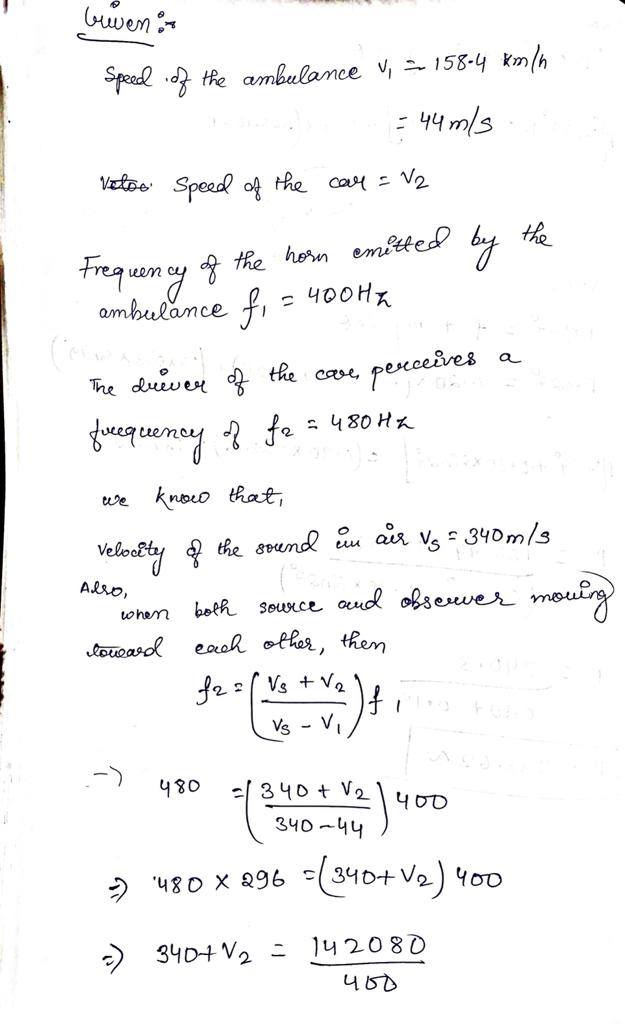 Given :-
Speed of the ambulance V₁ = 158.4 km/h
= 44 m/s
Speed of the car = V₂
Frequency of the horn emitted by the
ambulance f₁ = 400 Hz
The driver of the car, perceives a
frequency of f₂ = 480 Hz
we know that,
Velocity of the sound in air Vs = 340 m/s
Also,
when both source and observer moving
toward each other, then
f₂ = ( Vs + V₂ / Vs - V₁ ) f₁
-> 480 = ( 340 + V₂ / 340 - 44 ) 400
=> 480 × 296 = (340 + V₂) 400
=> 340 + V₂ = 142080 / 400